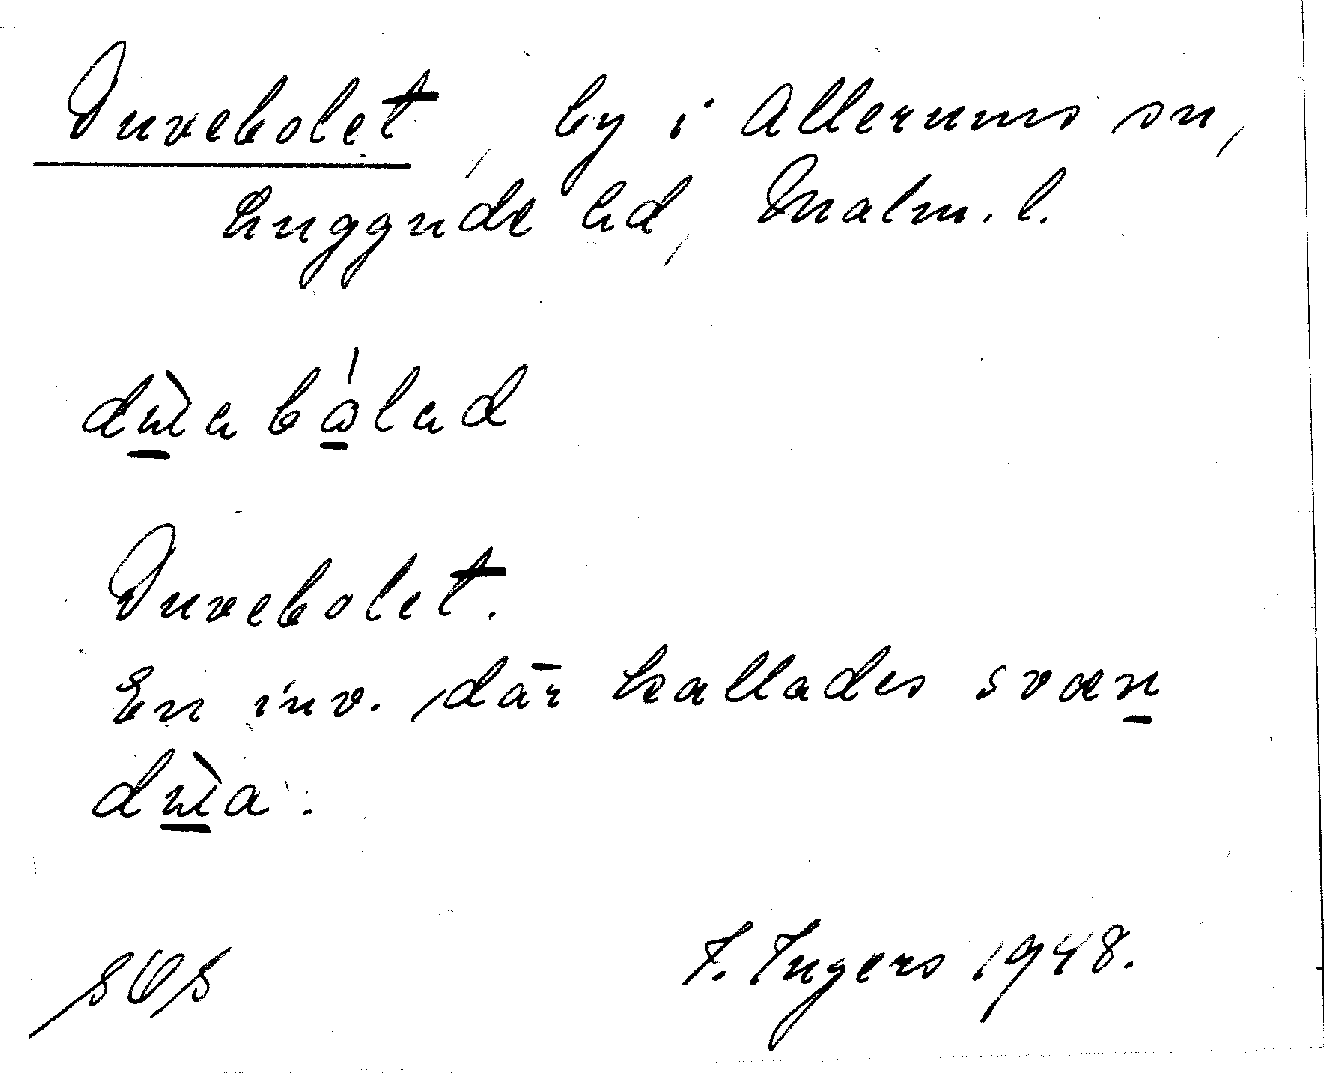 Duvebolet, by i Allerums sn,
Luggude hd, Malm. l.
Duvebolet.
En inv. där kallades svæn
I. Ingers 1948.